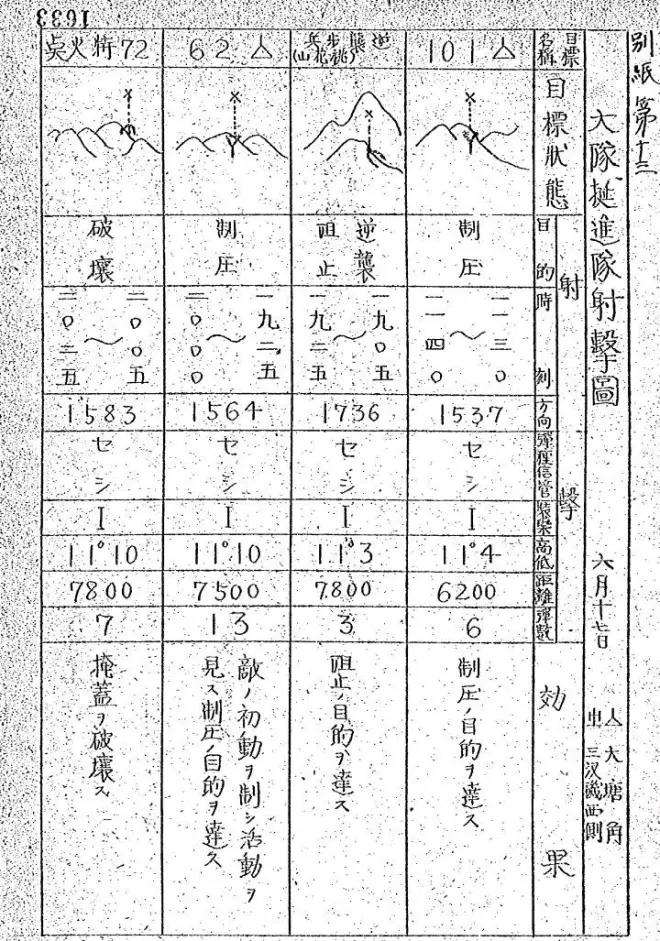 1633
別紙第十三
大隊挺進隊射撃圖
六月十七日
大塘角
三汊磯西側
目標名稱
目標狀態
射撃
目的
時刻
方向
彈種信管
裝藥
高低
距離
彈數
効果
101人
制圧
一一三〇
〜
一一四〇
1537
セシ
I
11°4
6200
6
制圧ノ目的ヲ達ス
逆襲歩兵
(桃花山)
逆襲阻止
一九〇五
〜
一九二五
1736
セシ
I
11°3
7800
3
阻止ノ目的ヲ達ス
62人
制圧
一九二五
〜
二〇〇〇
1564
セシ
I
11°10
7500
13
敵ノ初動ヲ制シ活動ヲ
見ス制圧ノ目的ヲ達ス
72特火点
破壞
二〇〇五
〜
二〇二五
1583
セシ
I
11°10
7800
7
掩蓋ヲ破壞ス